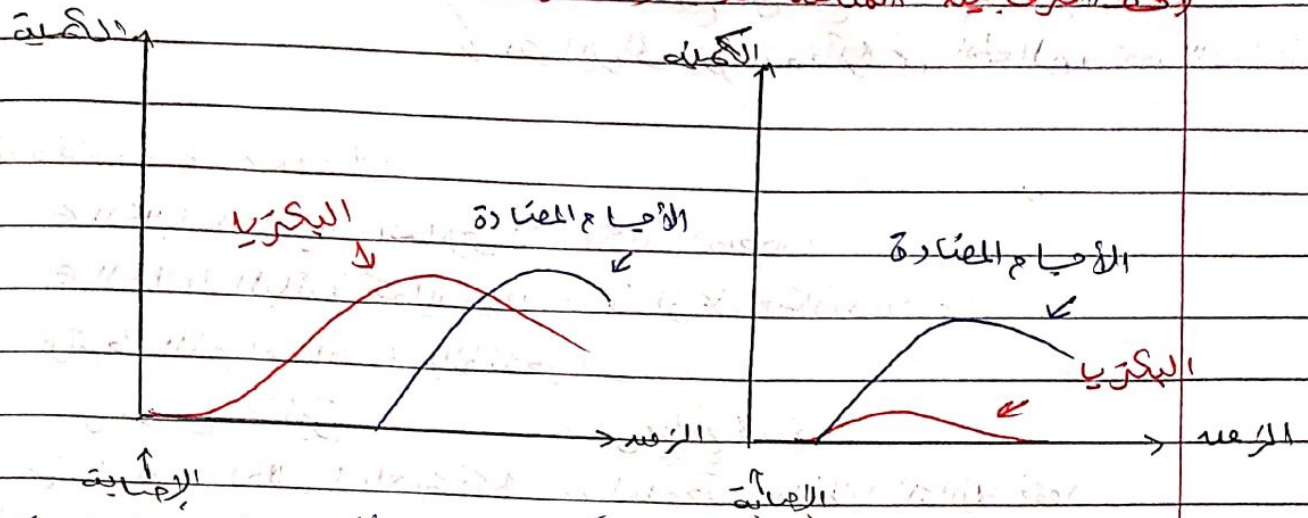 الكمية
الكمية
البكتريا
الأجسام المضادة
الأجسام المضادة
البكتريا
الزمن
الزمن
الإصابة
الإصابة